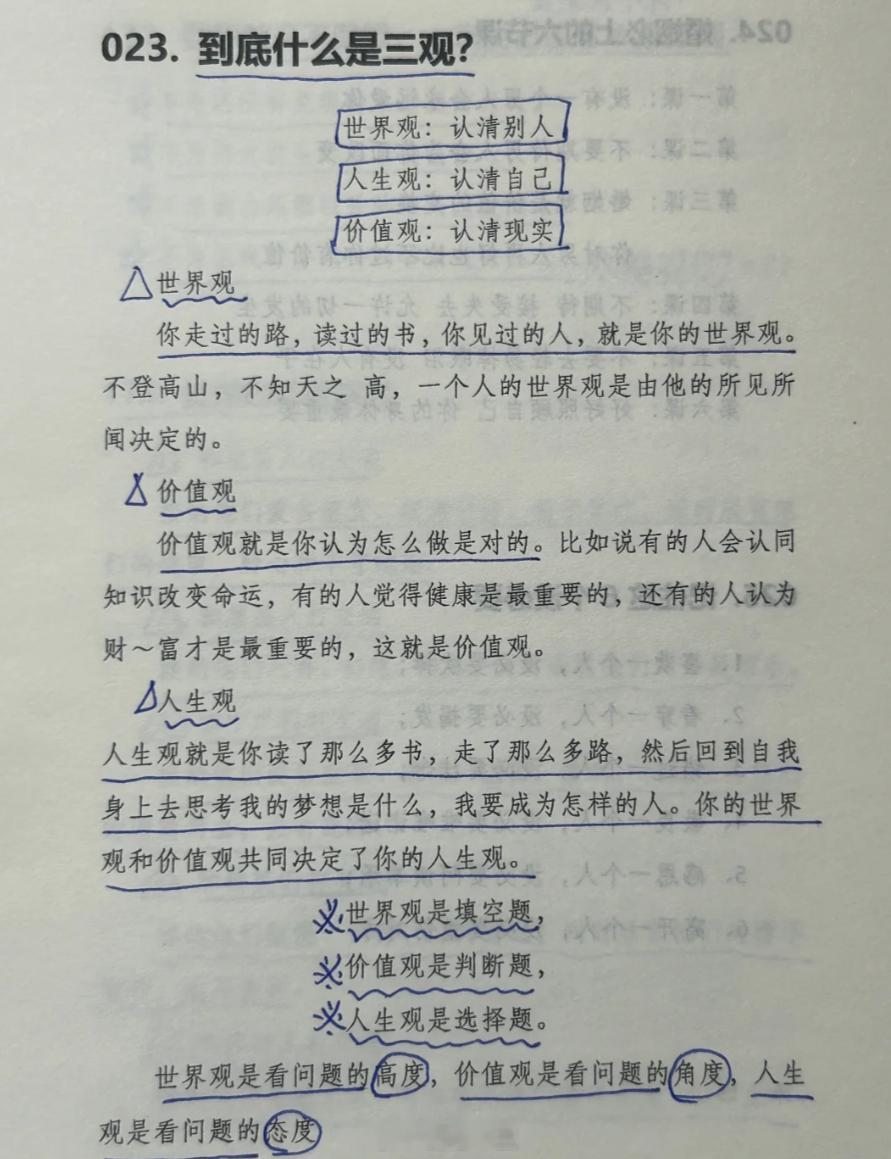 023. 到底什么是三观?
世界观：认清别人
人生观：认清自己
价值观：认清现实
世界观
你走过的路，读过的书，你见过的人，就是你的世界观。
不登高山，不知天之 高，一个人的世界观是由他的所见所
闻决定的。
价值观
价值观就是你认为怎么做是对的。比如说有的人会认同
知识改变命运，有的人觉得健康是最重要的，还有的人认为
财～富才是最重要的，这就是价值观。
人生观
人生观就是你读了那么多书，走了那么多路，然后回到自我
身上去思考我的梦想是什么，我要成为怎样的人。你的世界
观和价值观共同决定了你的人生观。
※世界观是填空题，
※价值观是判断题，
※人生观是选择题。
世界观是看问题的高度，价值观是看问题的角度，人生
观是看问题的态度